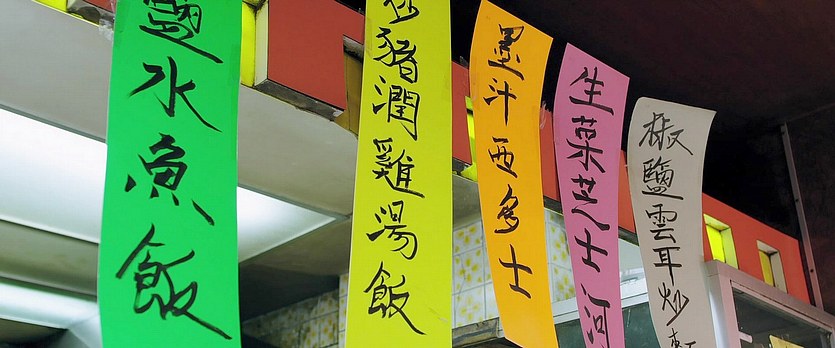 鹽水魚飯
炒豬潤雞湯飯
墨汁西多士
生菜芝士河
椒鹽雲耳炒